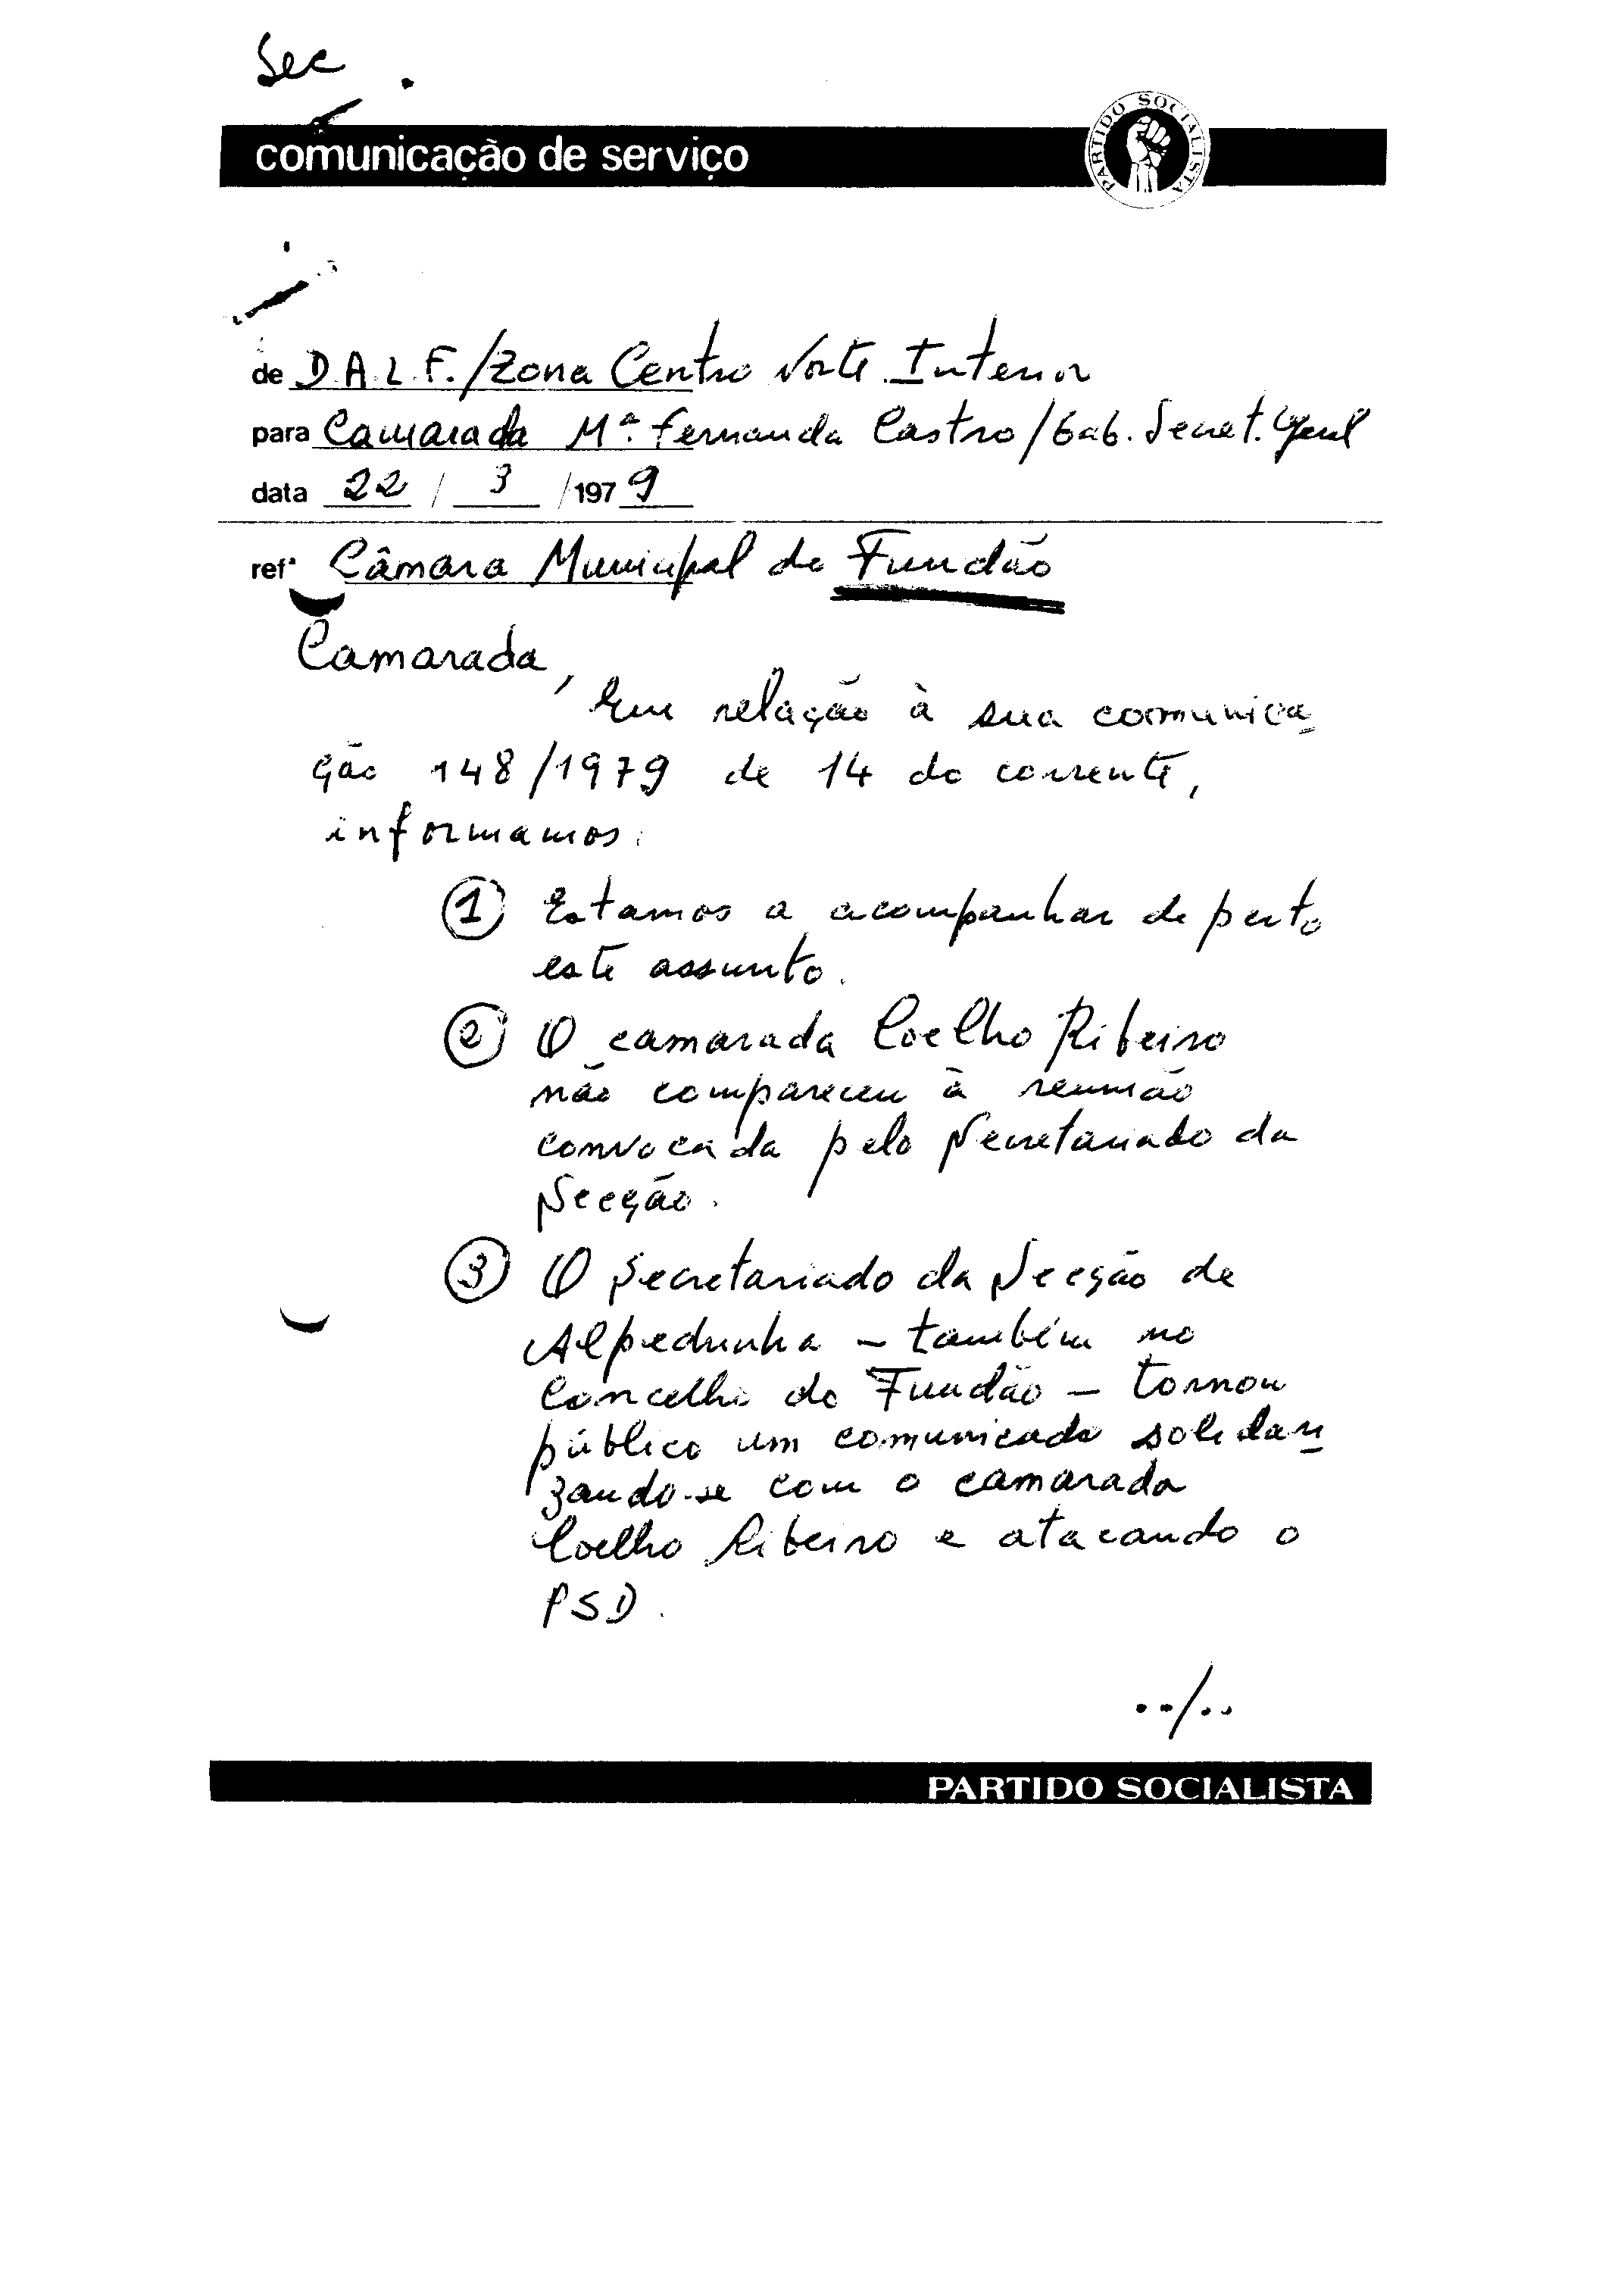 Sec
comunicação de serviço
PARTIDO SOCIALISTA
de D.A.L.F./Zona Centro Norte Interior
para Camarada Mª. Fernanda Castro/Gab. Secret. Geral
data 22 / 3 /1979
refª Câmara Municipal do Fundão
Camarada,
Em relação à sua comunica
ção 148/1979 de 14 do corrente,
informamos:
1 Estamos a acompanhar de perto
este assunto.
2 O camarada Coelho Ribeiro
não compareceu à reunião
convocada pelo Secretariado da
Secção.
3 O Secretariado da Secção de
Alpedrinha - também no
Concelho do Fundão - tornou
público um comunicado solidari
zando-se com o camarada
Coelho Ribeiro e atacando o
PSD.
../..
PARTIDO SOCIALISTA